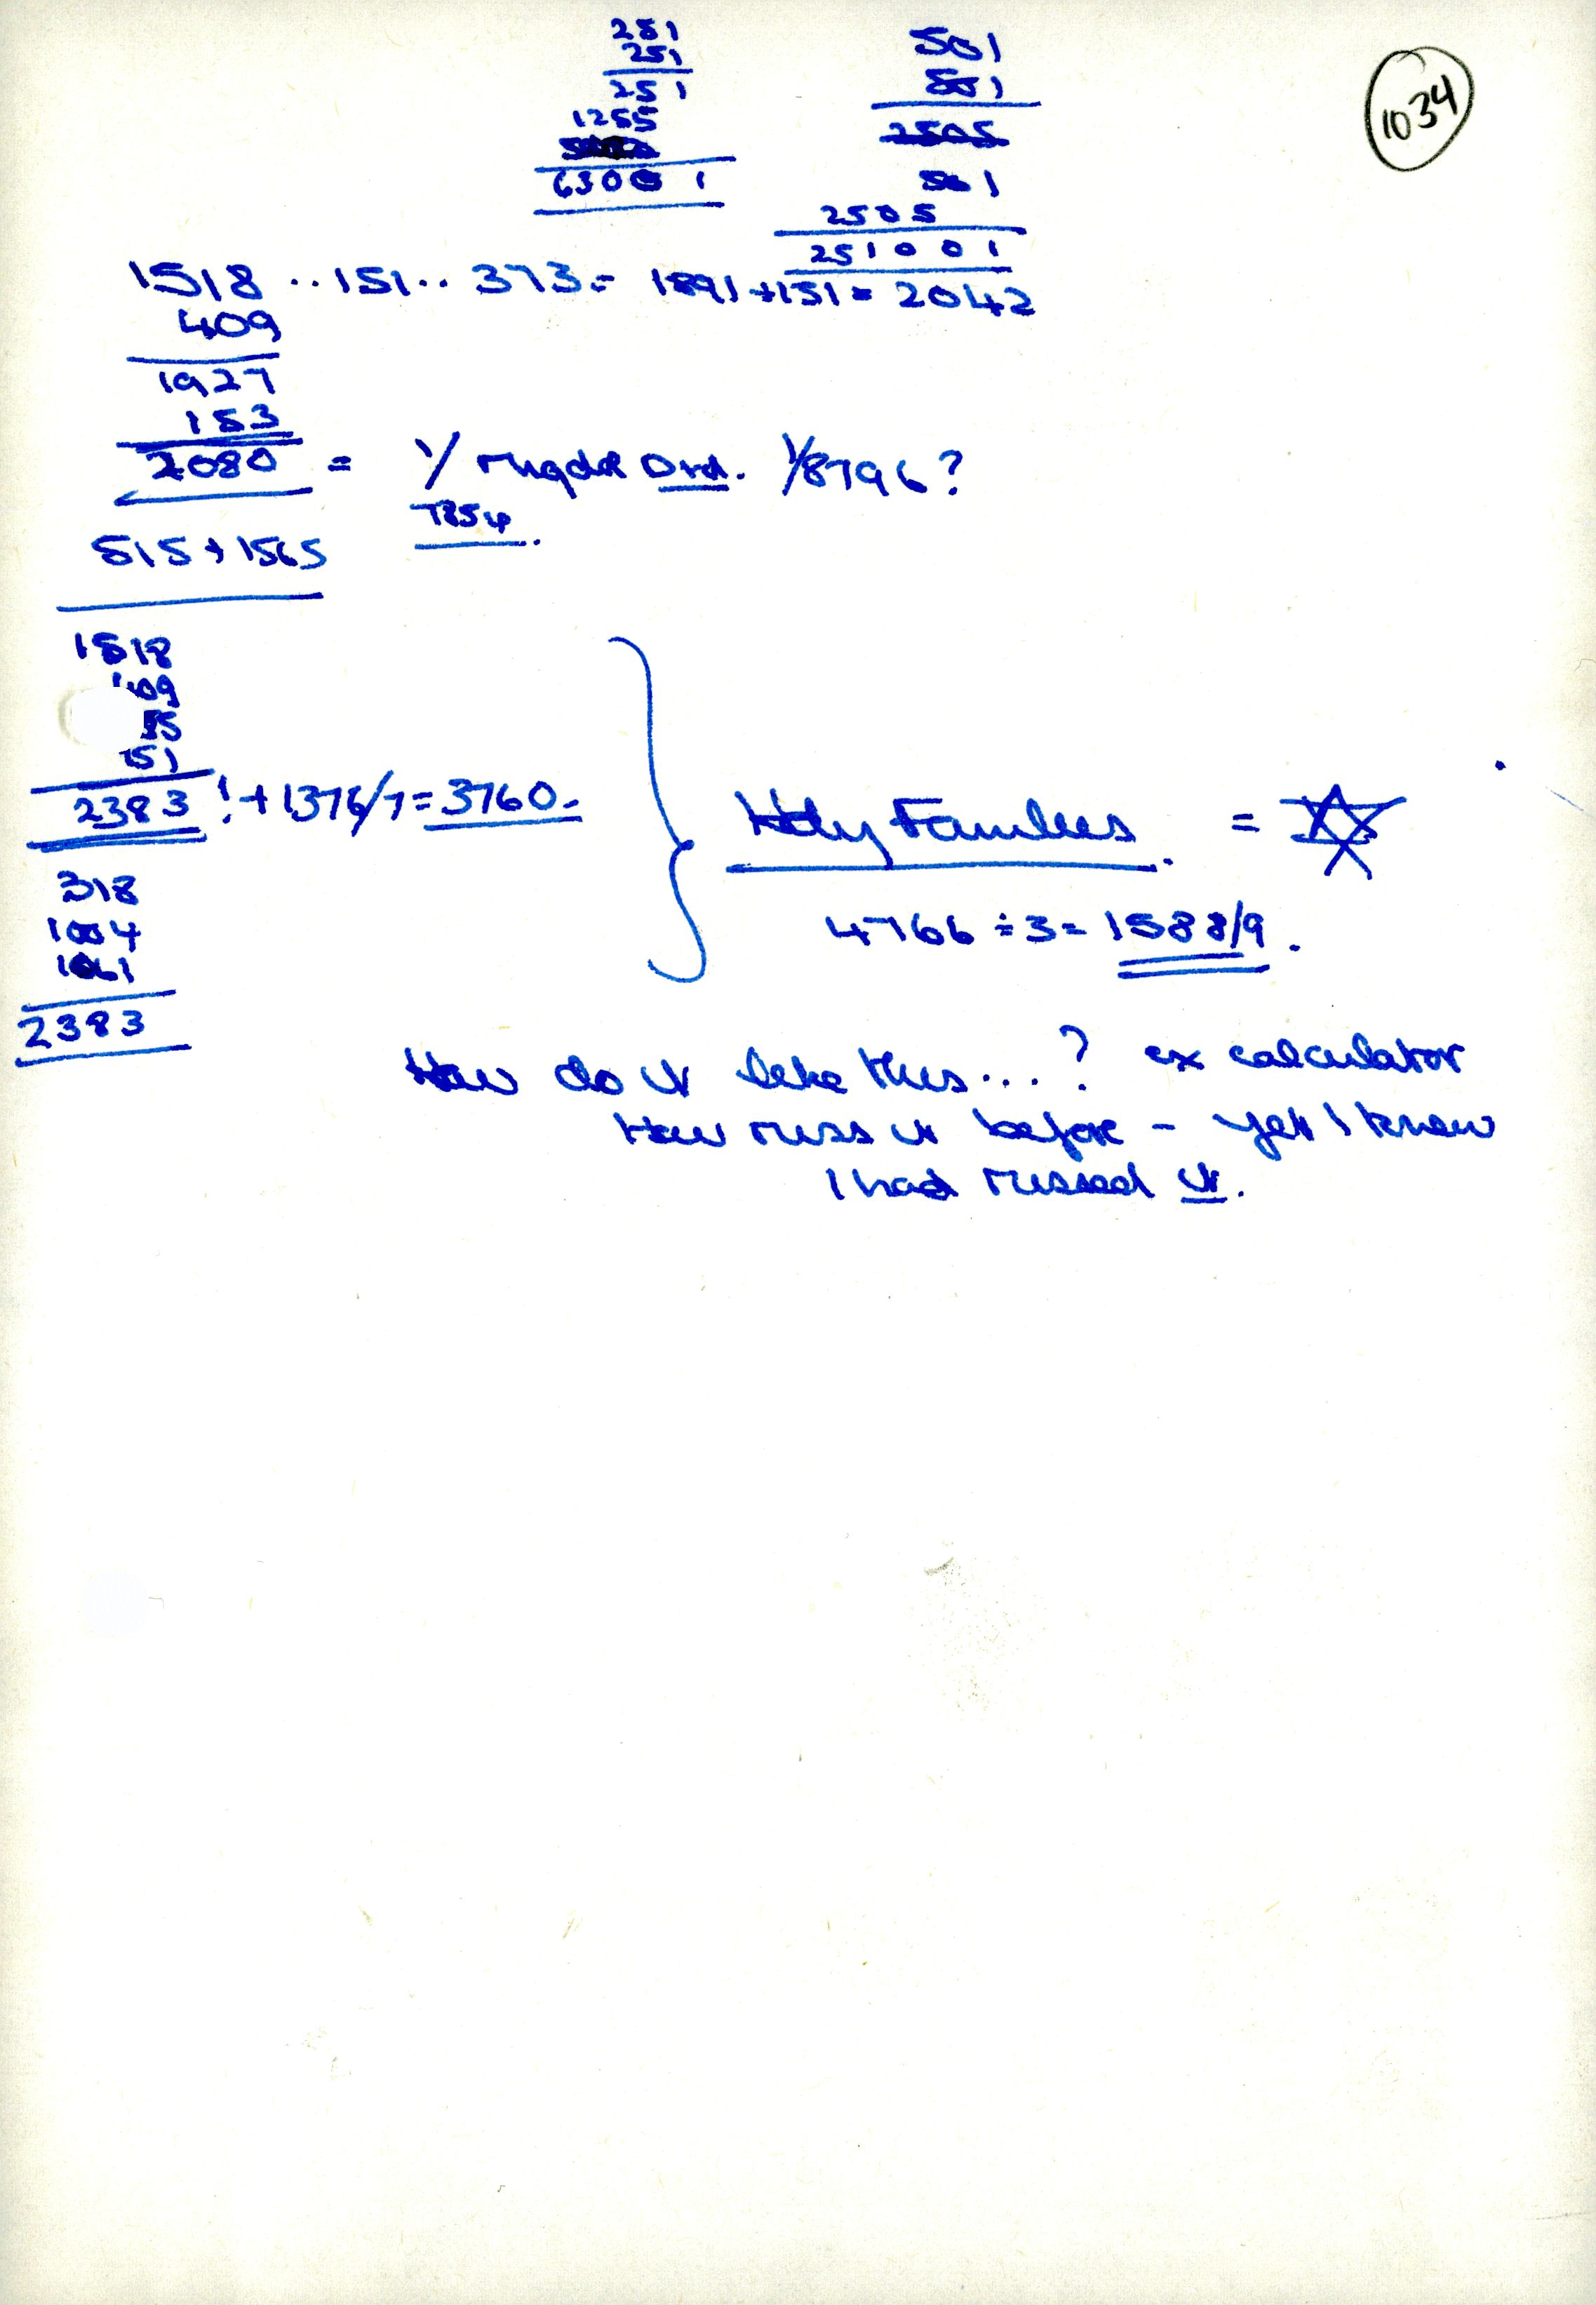 1034
251
251
251
1255
63001
501
501
2505
501
2505
251001
1518 ..151.. 373 = 1891 + 151 = 2042
409
1927
153
2080 = 1/ Ord. 1/8796?
7854
515 + 1565
1518
409
151
2383 ! + 1376/7 = 3760
Holy Families =
4766 ÷ 3 = 1588/9.
318
1004
1061
2383
How do it like this...? ex calculator
How miss it before - yet I knew
I had missed it.